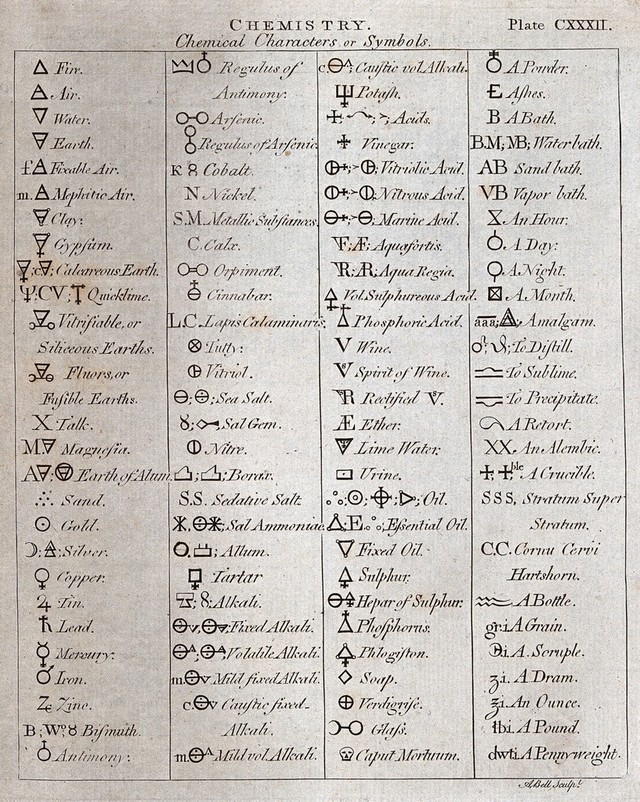 CHEMISTRY.
Plate CXXXII.
Chemical Characters or Symbols.
Fire.
Air.
Water.
Earth.
f Fixable Air.
m. Mephitic Air.
Clay.
Gypsum.
Calcareous Earth.
CV; Quicklime.
Vitrifiable, or
Siliceous Earths.
Fluors, or
Fusible Earths.
X Talk.
M Magnesia.
A Earth of Alum.
Sand.
Gold.
Silver.
Copper.
Tin.
Lead.
Mercury.
Iron.
Zinc.
B; W Bismuth.
Antimony.
Regulus of
Antimony.
Arsenic.
Regulus of Arsenic.
K Cobalt.
N Nickel.
S.M. Metallic Substances.
C. Calx.
Orpiment.
Cinnabar.
L.C. Lapis Calaminaris.
Tutty.
Vitriol.
Sea Salt.
Sal Gem.
Nitre.
Borax.
S.S. Sedative Salt.
Sal Ammoniac.
Allum.
Tartar
Alkali.
Fixed Alkali.
Volatile Alkali.
m. Mild fixed Alkali.
c. Caustic fixed
Alkali.
m. Mild vol. Alkali.
c. Caustic vol. Alkali.
Potash.
Acids.
Vinegar.
Vitriolic Acid.
Nitrous Acid.
Marine Acid.
Æ; Aquafortis.
Aqua Regia.
Vol. Sulphureous Acid.
Phosphoric Acid.
V Wine.
Spirit of Wine.
Rectified
Æ Ether.
Lime Water.
Urine.
Oil.
E Essential Oil.
Fixed Oil.
Sulphur.
Hepar of Sulphur.
Phosphorus.
Phlogiston.
Soap.
Verdigrise.
Glass.
Caput Mortuum.
A Powder.
E Ashes.
B A Bath.
B.M; MB; Water bath.
AB Sand bath.
VB Vapor bath.
X An Hour.
A Day.
A Night.
A Month.
aaa; Amalgam.
To Distill.
To Sublime.
To Precipitate.
A Retort.
XX. An Alembic.
ble A Crucible.
SSS, Stratum Super
Stratum.
C.C. Cornu Cervi
Hartshorn.
A Bottle.
gr.i A Grain.
℈i A Scruple.
ʒi. A Dram.
℥i. An Ounce.
lbi. A Pound.
dwti A Pennyweight.
A Bell Sculpt.